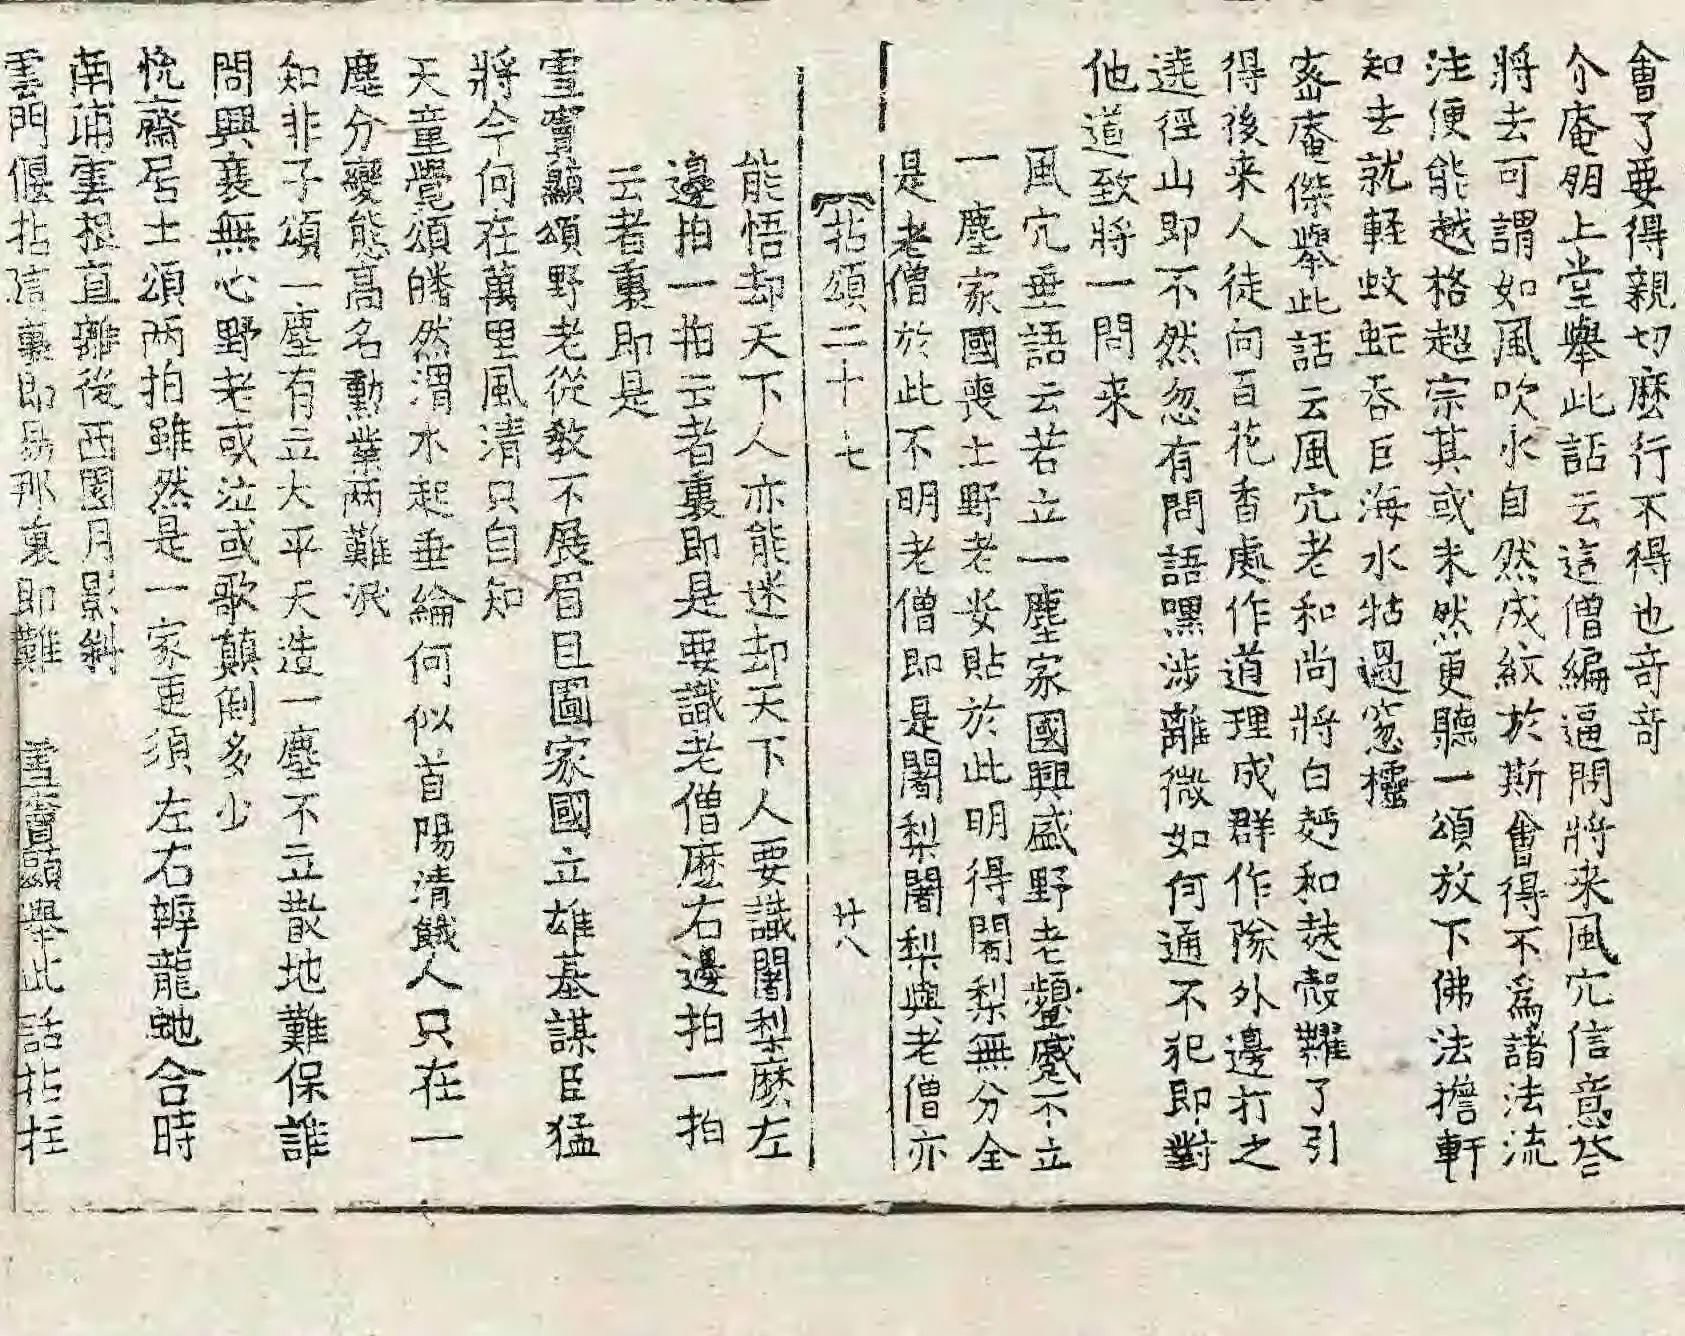 會了要得親切麽行不得也竒竒
介庵朋上堂擧此話云這僧編逼問將来風宂信意荅
將去可謂如風吹水自然成紋於斯會得不爲諸法流
注便能越格超宗其或未然更聽一頌放下佛法擔軒
知去就輊蚊虻吞巨海水牯過窓櫺
密庵傑擧此話云風宂老和尚將白麪和麩殻糶了引
得後来人徒向百花香處作道理成群作隊外邊打之
遶徑山即不然忽有問語嘿涉離微如何通不犯即對
他道致將一問来
風宂垂語云若立一塵家國興盛野老顰蹙不立
一塵家國喪土野老安貼於此明得闍梨無分全
是老僧於此不明老僧即是闍梨闍梨與老僧亦
拈頌二十七 廿八
能悟却天下人亦能迷却天下人要識闍梨麽左
邊拍一拍云者裏即是要識老僧麽右邊拍一拍
云者裏即是
雪竇顯頌野老從教不展眉且圖家國立雄基謀臣猛
將今何在萬里風清只自知
天童覺頌皤然渭水起垂綸何似首陽清餓人只在一
塵分變態高名勳業両難泯
知非子頌一塵有立大平天造一塵不立散地難保誰
問興衰無心野老或泣或歌顛倒多少
恱齋居士頌两拍雖然是一家更須左右辨龍虵合時
南浦雲根直離後西園月影斜
雲門偃拈這裏即易那裏即難 雪竇顯擧此話拈拄